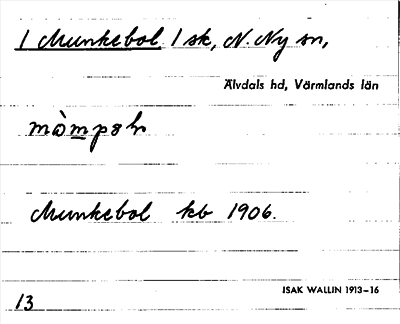 1 Munkebol 1 sk, N. Ny sn,
Älvdals hd, Värmlands län
Munkebol kb 1906.
ISAK WALLIN 1913–16
13